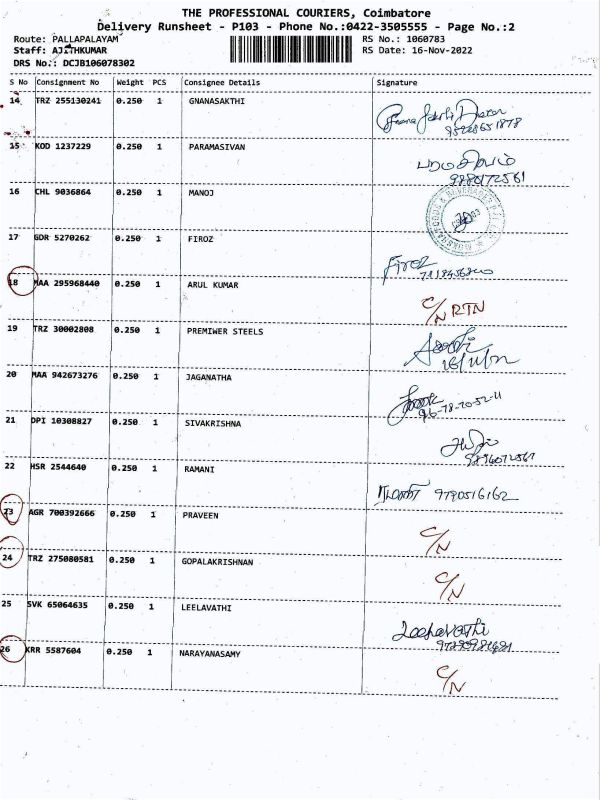 THE PROFESSIONAL COURIERS, Coimbatore
Delivery Runsheet - P103 - Phone No.:0422-3505555 - Page No.:2
Route: PALLAPALAYAM RS No.: 1060783
Staff: AJITHKUMAR RS Date: 16-Nov-2022
DRS No.: DCJB106078302
S No Consignment No Weight PCS Consignee Details Signature
14 TRZ 255130241 0.250 1 GNANASAKTHI
15 KOD 1237229 0.250 1 PARAMASIVAN
9880172561
16 CHL 9036864 0.250 1 MANOJ
17 GDR 5270262 0.250 1 FIROZ
Firoz
18 MAA 295968440 0.250 1 ARUL KUMAR
C/N RTN
19 TRZ 30002808 0.250 1 PREMIWER STEELS
16/11/22
20 MAA 942673276 0.250 1 JAGANATHA
96-78-70-52-11
21 DPI 10308827 0.250 1 SIVAKRISHNA
22 HSR 2544640 0.250 1 RAMANI
9790516162
23 AGR 700392666 0.250 1 PRAVEEN
C/N
24 TRZ 275080581 0.250 1 GOPALAKRISHNAN
C/N
25 SVK 65064635 0.250 1 LEELAVATHI
Leelavathi
26 KRR 5587604 0.250 1 NARAYANASAMY
C/N